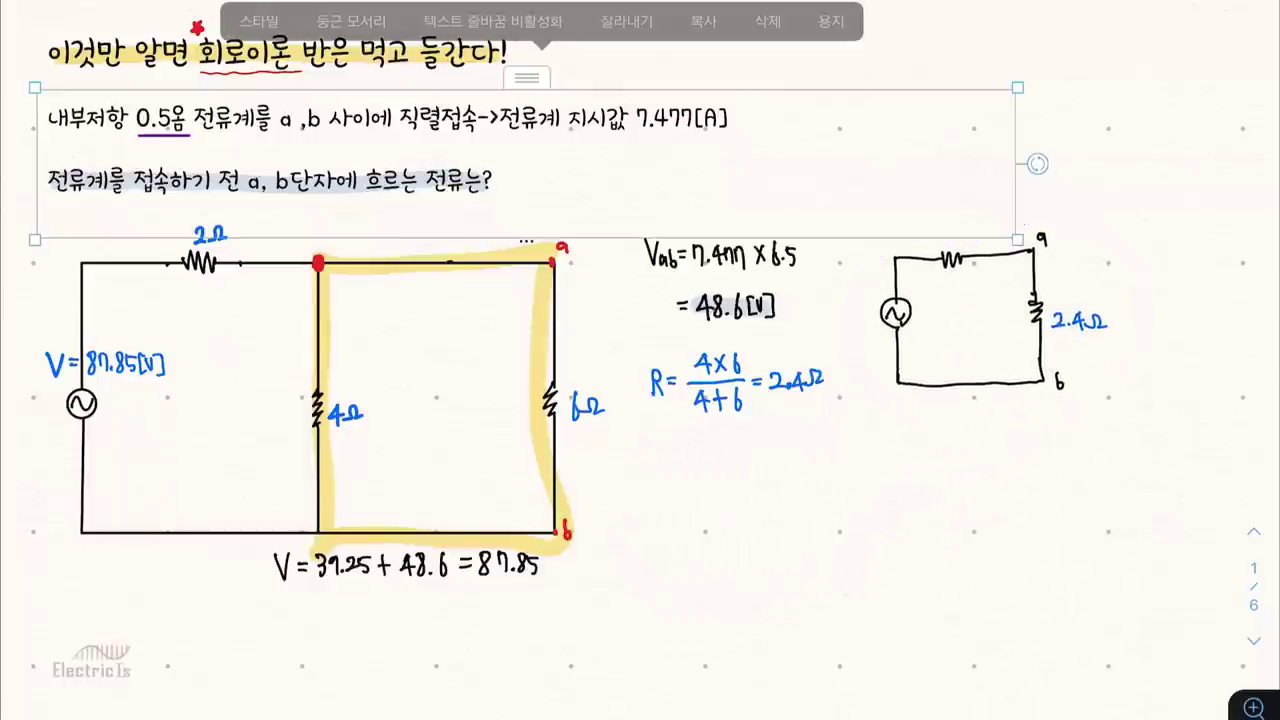 스타일 둥근 모서리 텍스트 줄바꿈 비활성화 잘라내기 복사 삭제 용지
이것만 알면 회로이론 반은 먹고 들간다!
내부저항 0.5옴 전류계를 a ,b 사이에 직렬접속->전류계 지시값 7.477[A]
전류계를 접속하기 전 a, b단자에 흐르는 전류는?
2Ω
a
V=87.85[V]
4Ω
6Ω
b
V=39.25+48.6=87.85
Vab=7.477×6.5
=48.6[V]
R=4×6/4+6=2.4Ω
a
2.4Ω
b
1
/
6
Electric Is